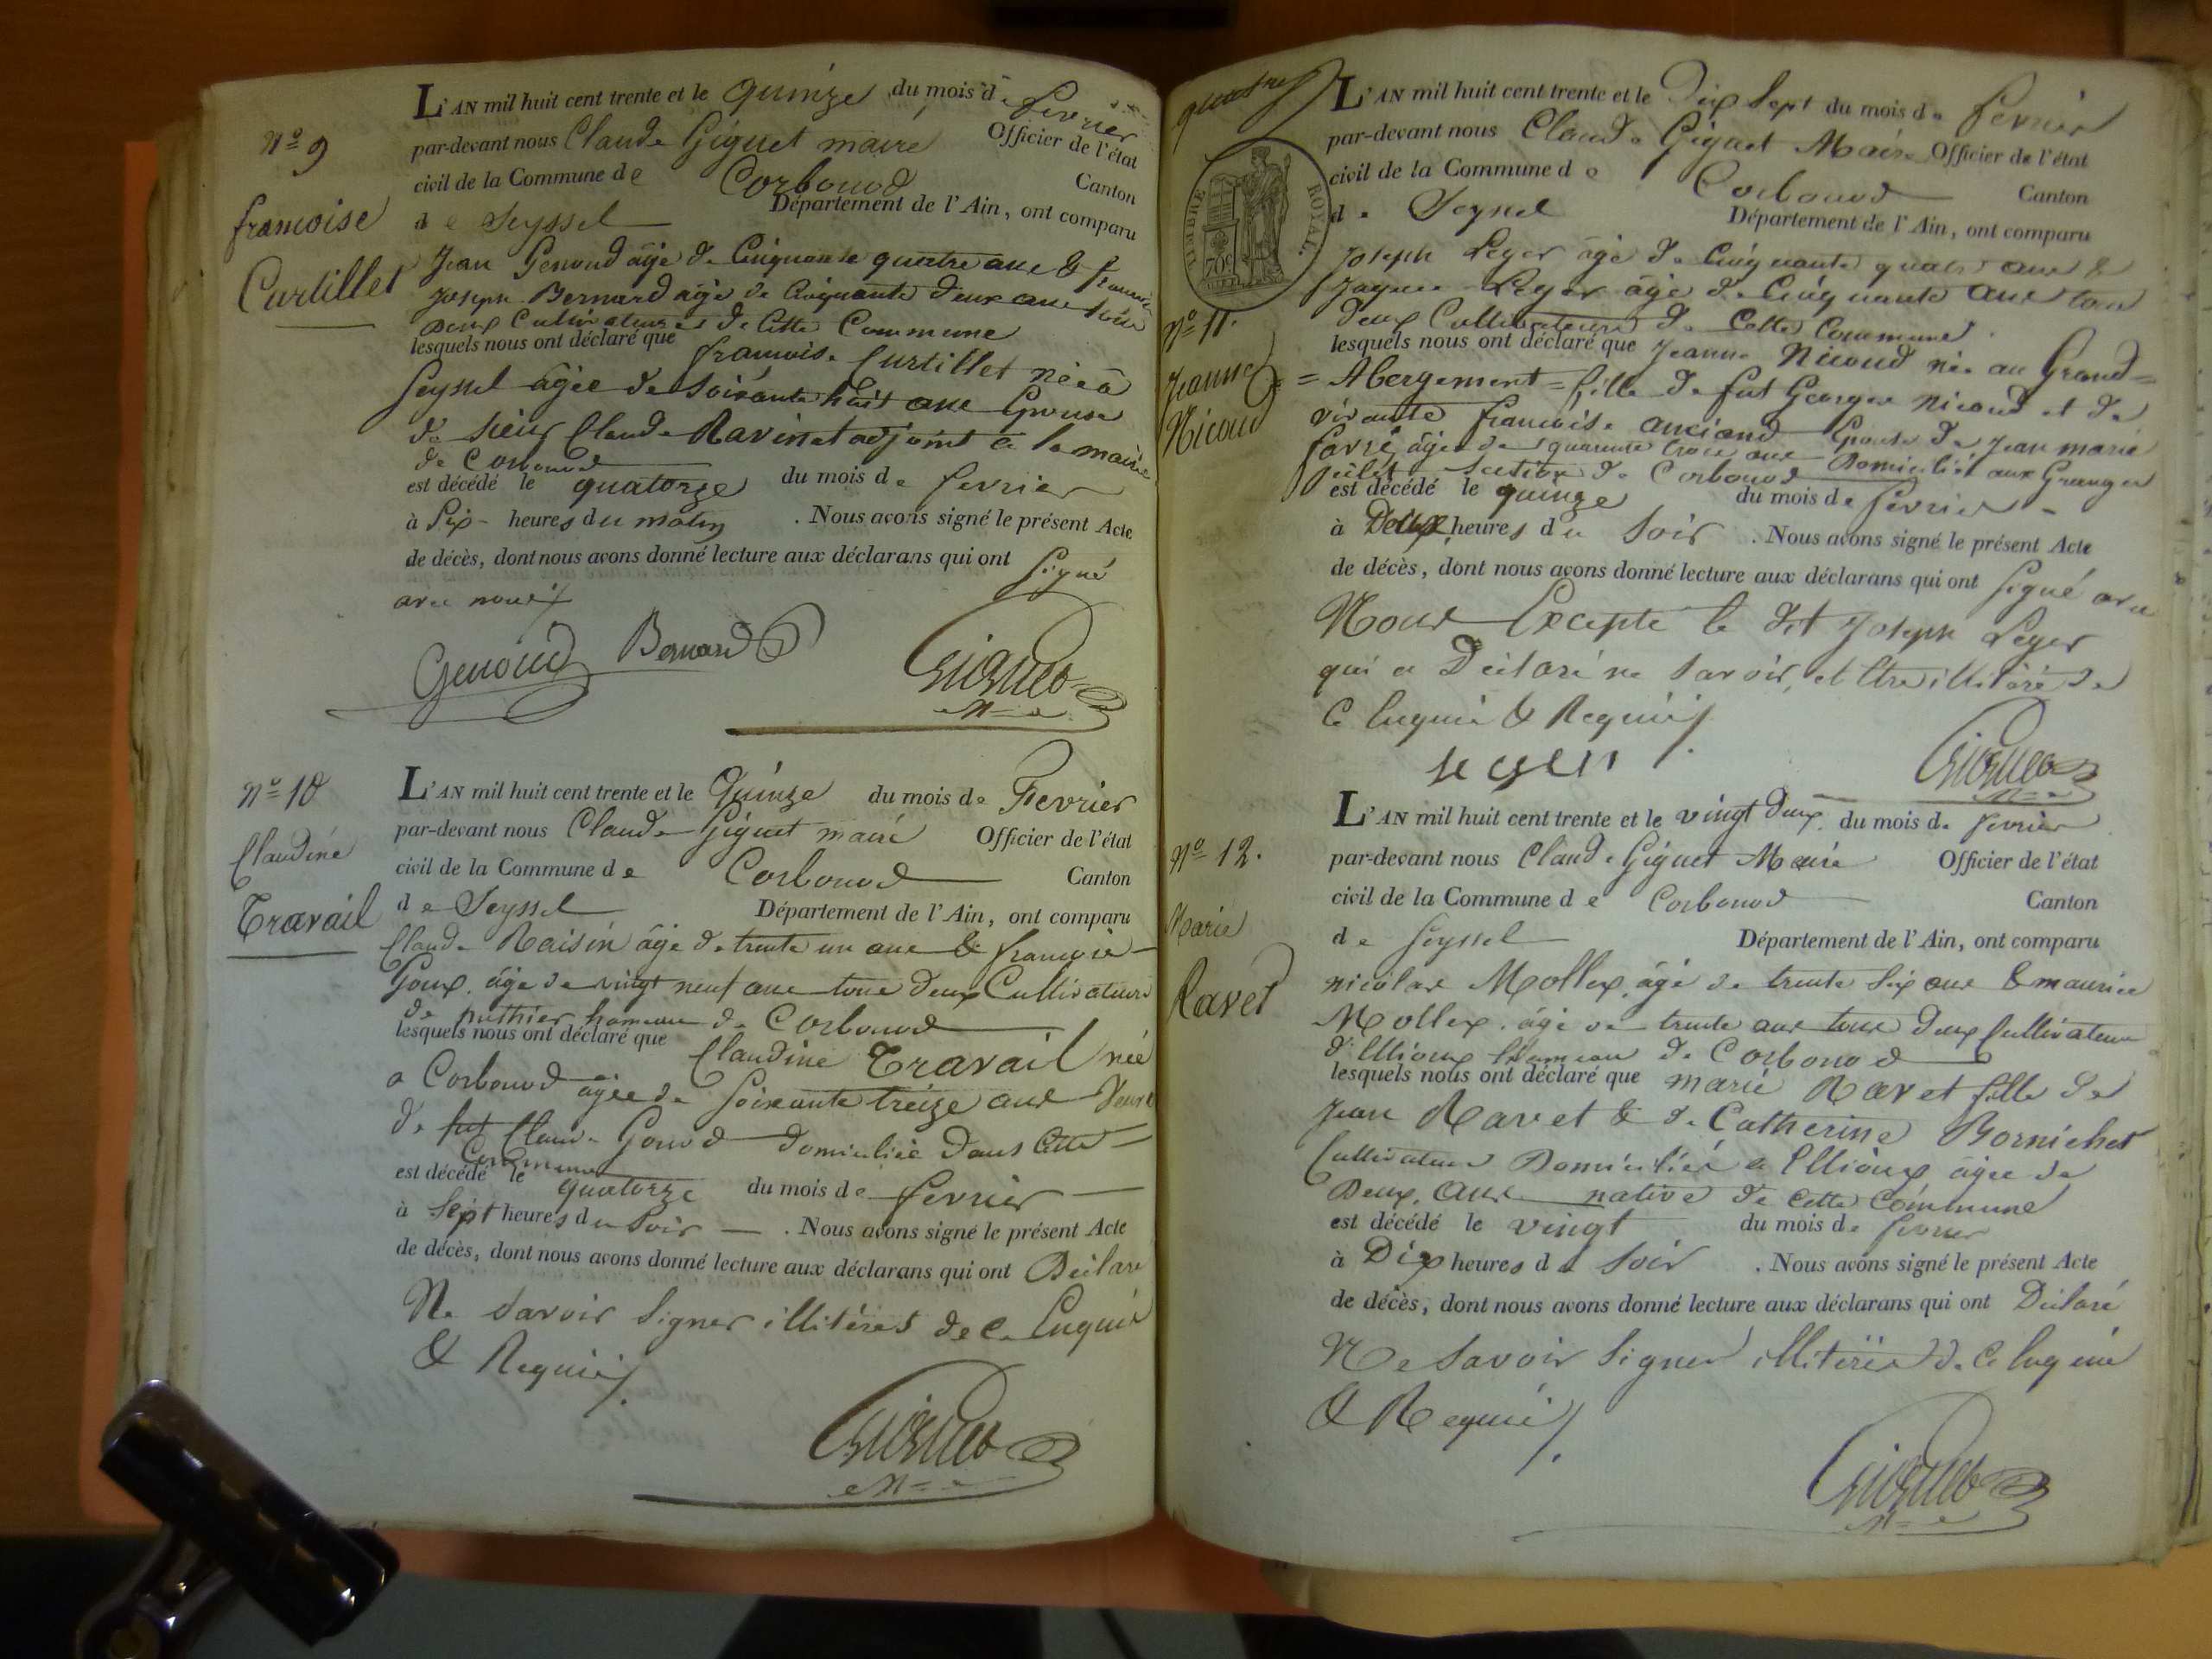 N.º 9
françoise
Curtillet
L'AN mil huit cent trente et le quinze du mois de fevrier
par-devant nous Claude Giguet maire Officier de l'état
civil de la Commune de Corbonod Canton
de Seyssel Département de l'Ain, ont comparu
Jean Genoud âgé de Cinquante quatre ans & françois
Joseph Bernard âgé de Cinquante deux ans tous
deux Cultivateurs de Cette Commune
lesquels nous ont déclaré que françoise Curtillet née à
Seyssel âgée de Soixante huit ans Epouse
de sieur Claude Ravinet adjoint a la mairie
de Corbonod
est décédé le quatorze du mois de fevrier
à Six heures du matin . Nous avons signé le présent Acte
de décès, dont nous avons donné lecture aux déclarans qui ont Signé
avec nous
Genoud Bernard Giguet
N.º 10
Claudine
Travail
L'AN mil huit cent trente et le Quinze du mois de Fevrier
par-devant nous Claude Giguet maire Officier de l'état
civil de la Commune de Corbonod Canton
de Seyssel Département de l'Ain, ont comparu
Claude Raisin âgé de trente un ans & françois
Goux âgé de vingt neuf ans tous deux Cultivateurs
de puthier hameau de Corbonod
lesquels nous ont déclaré que Claudine Travail née
a Corbonod âgée de Soixante treize ans Veuve
de fut Claude Gonod domiciliée dans Cette
Commune
est décédé le quatorze du mois de fevrier
à Sept heures du Soir . Nous avons signé le présent Acte
de décès, dont nous avons donné lecture aux déclarans qui ont Déclaré
Ne Savoir Signer illitérés de Ce Enquis
& Requis
Giguet
quatre
TIMBRE ROYAL
70c
N.º 11.
Jeanne
Nicoud
L'AN mil huit cent trente et le Dix Sept du mois de fevrier
par-devant nous Claude Giguet Maire Officier de l'état
civil de la Commune de Corbonod Canton
de Seyssel Département de l'Ain, ont comparu
Joseph Leger âgé de Cinquante quatre ans &
Jaques Leger âgé de Cinquante ans tous
deux Cultivateurs de Cette Commune
lesquels nous ont déclaré que Jeanne Nicoud née au Grand=
=Abergement= fille de fut George Nicoud et de
vivante françoise anciand Epouse de Jean marie
favre âgée de quarante trois ans Domiciliée aux Granges
section de Corbonod
est décédé le quinze du mois de fevrier
à Deux heures du Soir . Nous avons signé le présent Acte
de décès, dont nous avons donné lecture aux déclarans qui ont Signé avec
Nous Excepté le dit Joseph Leger
qui a Déclaré ne Savoir, et Etre illitéré de
Ce Enquis & Requis
leger Giguet
N.º 12.
Marie
Ravet
L'AN mil huit cent trente et le vingt deux du mois de fevrier
par-devant nous Claude Giguet Maire Officier de l'état
civil de la Commune de Corbonod Canton
de Seyssel Département de l'Ain, ont comparu
nicolas Mollex âgé de trente Six ans & maurice
Mollex âgé de trente ans tous deux Cultivateurs
d'Ellioux hameau de Corbonod
lesquels nous ont déclaré que marie Ravet fille de
Jean Ravet & de Catherine Bornichet
Cultivateurs Domiciliés a Ellioux âgée de
Deux ans native de Cette Commune
est décédé le vingt du mois de fevrier
à Dix heures du Soir . Nous avons signé le présent Acte
de décès, dont nous avons donné lecture aux déclarans qui ont Déclaré
Ne Savoir Signer illitérés de Ce Enquis
& Requis
Giguet